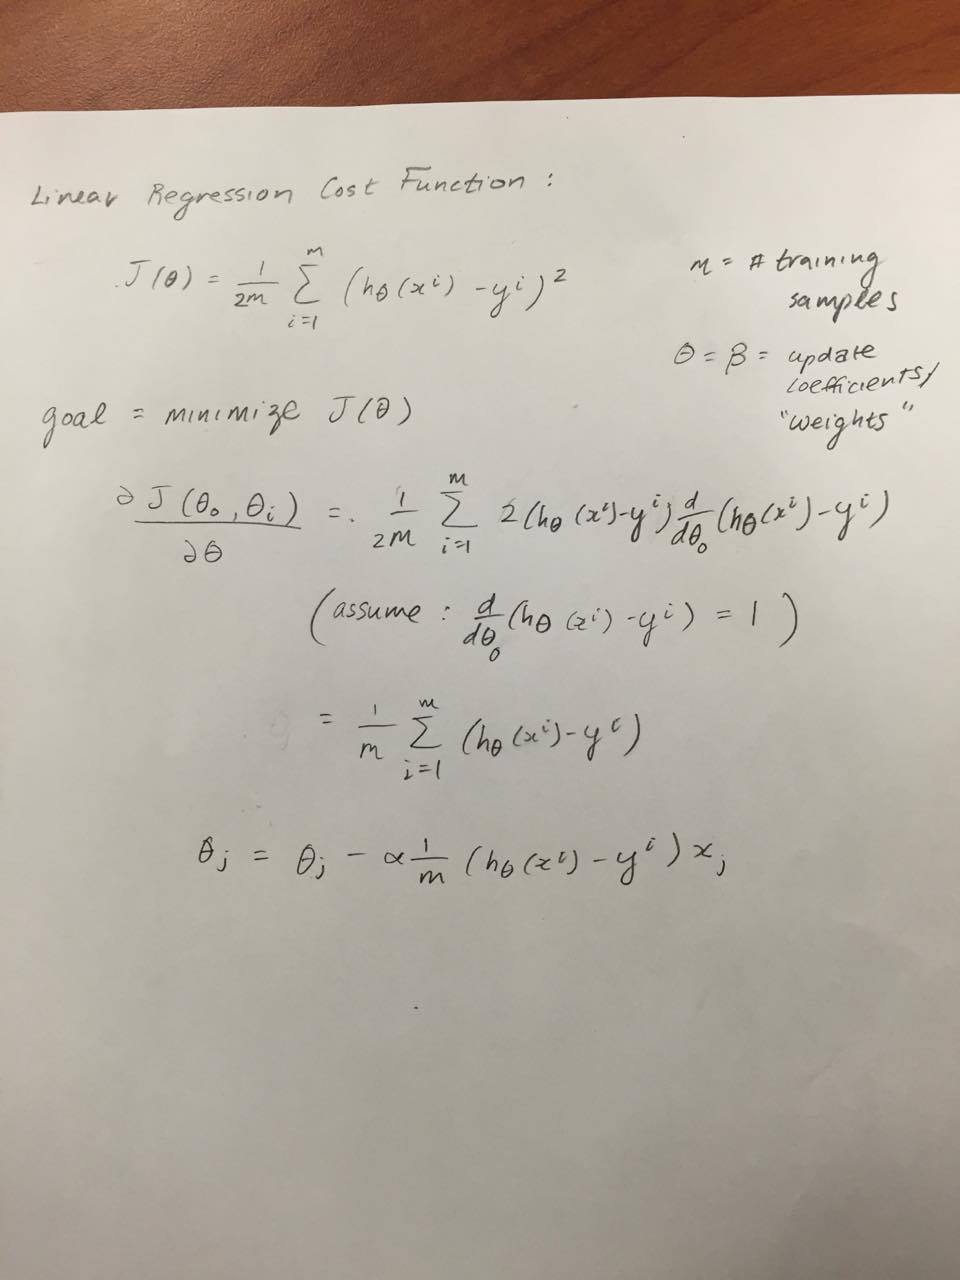 Linear Regression Cost Function :
J(θ) = 1/2m ∑_{i=1}^{m} (hθ(xⁱ) - yⁱ)²
m = # training
samples
θ = β = update
coefficients/
"weights"
goal = minimize J(θ)
∂J(θ₀, θᵢ)/∂θ = 1/2m ∑_{i=1}^{m} 2(hθ(xⁱ) - yⁱ) d/dθ₀ (hθ(xⁱ) - yⁱ)
(assume : d/dθ₀ (hθ(xⁱ) - yⁱ) = 1)
= 1/m ∑_{i=1}^{m} (hθ(xⁱ) - yⁱ)
θⱼ = θⱼ - α 1/m (hθ(xⁱ) - yⁱ) xⱼ